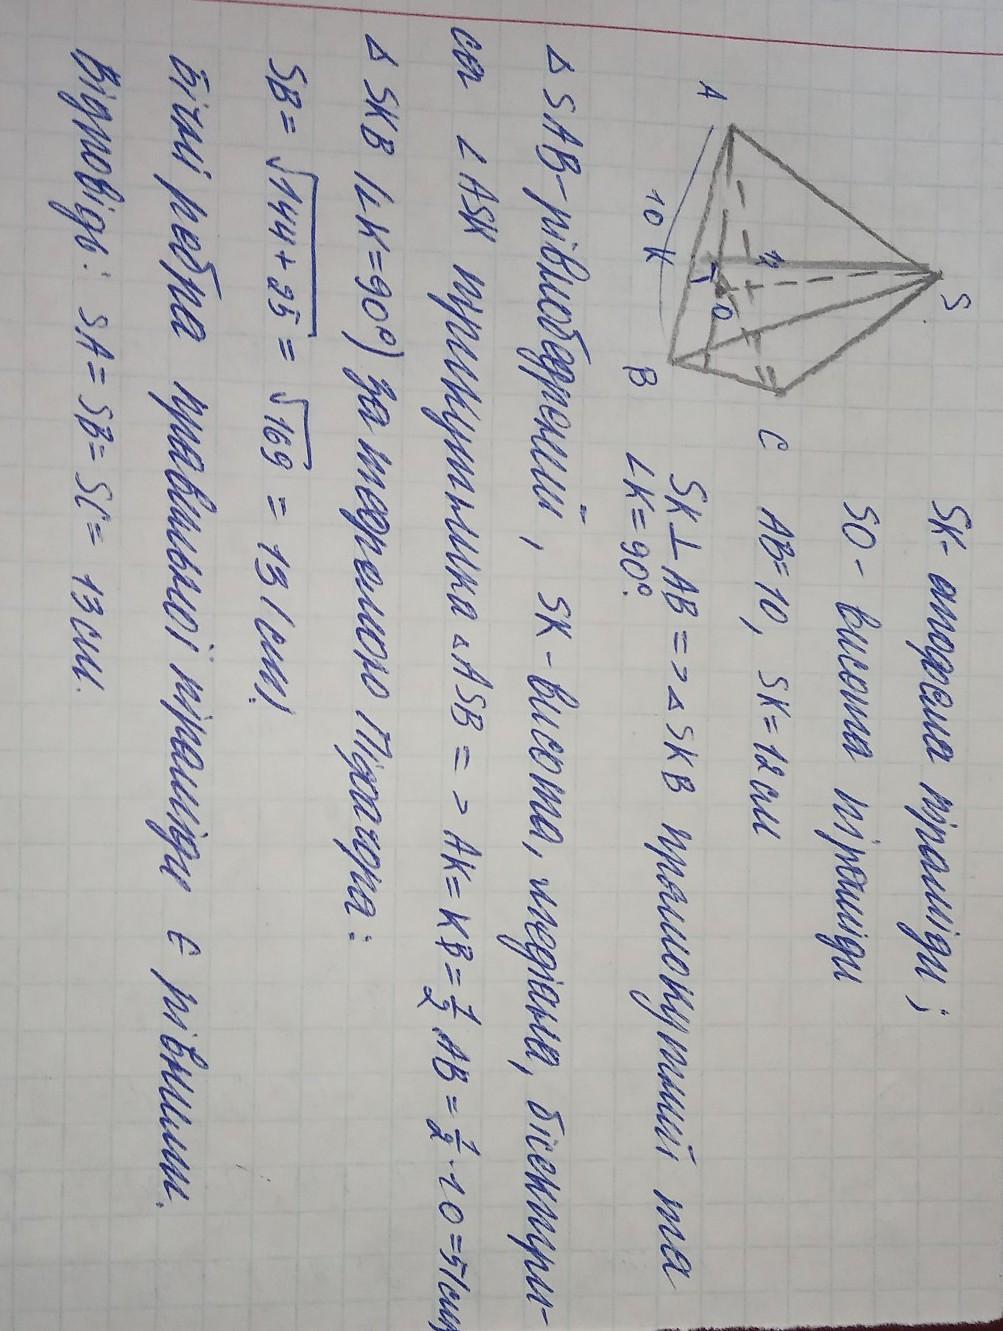 S
A
10
K
O
B
C
12
SK - апофема піраміди;
SO - висота піраміди
AB=10, SK=12см
SK⊥AB=>△SKB прямокутний та
∠K=90°.
△SAB-рівнобедрений, SK-висота, медіана, бісектри-
са ∠ASK трикутника △ASB=> AK=KB=1/2 AB=1/2·10=5(см)
△SKB (∠K=90°) за теоремою Піфагора:
SB=√144+25=√169=13(см)
Бічні ребра правильної піраміди є рівними.
Відповідь: SA=SB=SC=13см.